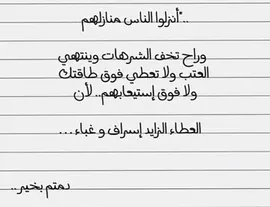 .."أنزلوا الناس منازلهم
وراح تخف الشرهات وينتهي
العتب ولا تعطي فوق طاقتك
ولا فوق إستيعابهم.. لأن
العطاء الزايد إسراف و غباء...
دمتم بخير..